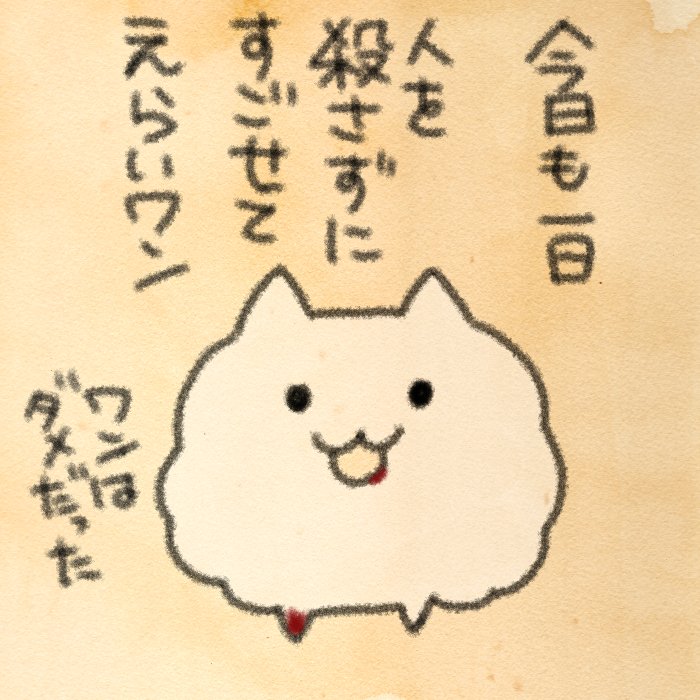 今日も一日
人を
殺さずに
すごせて
えらいワン
ワンは
ダメだった